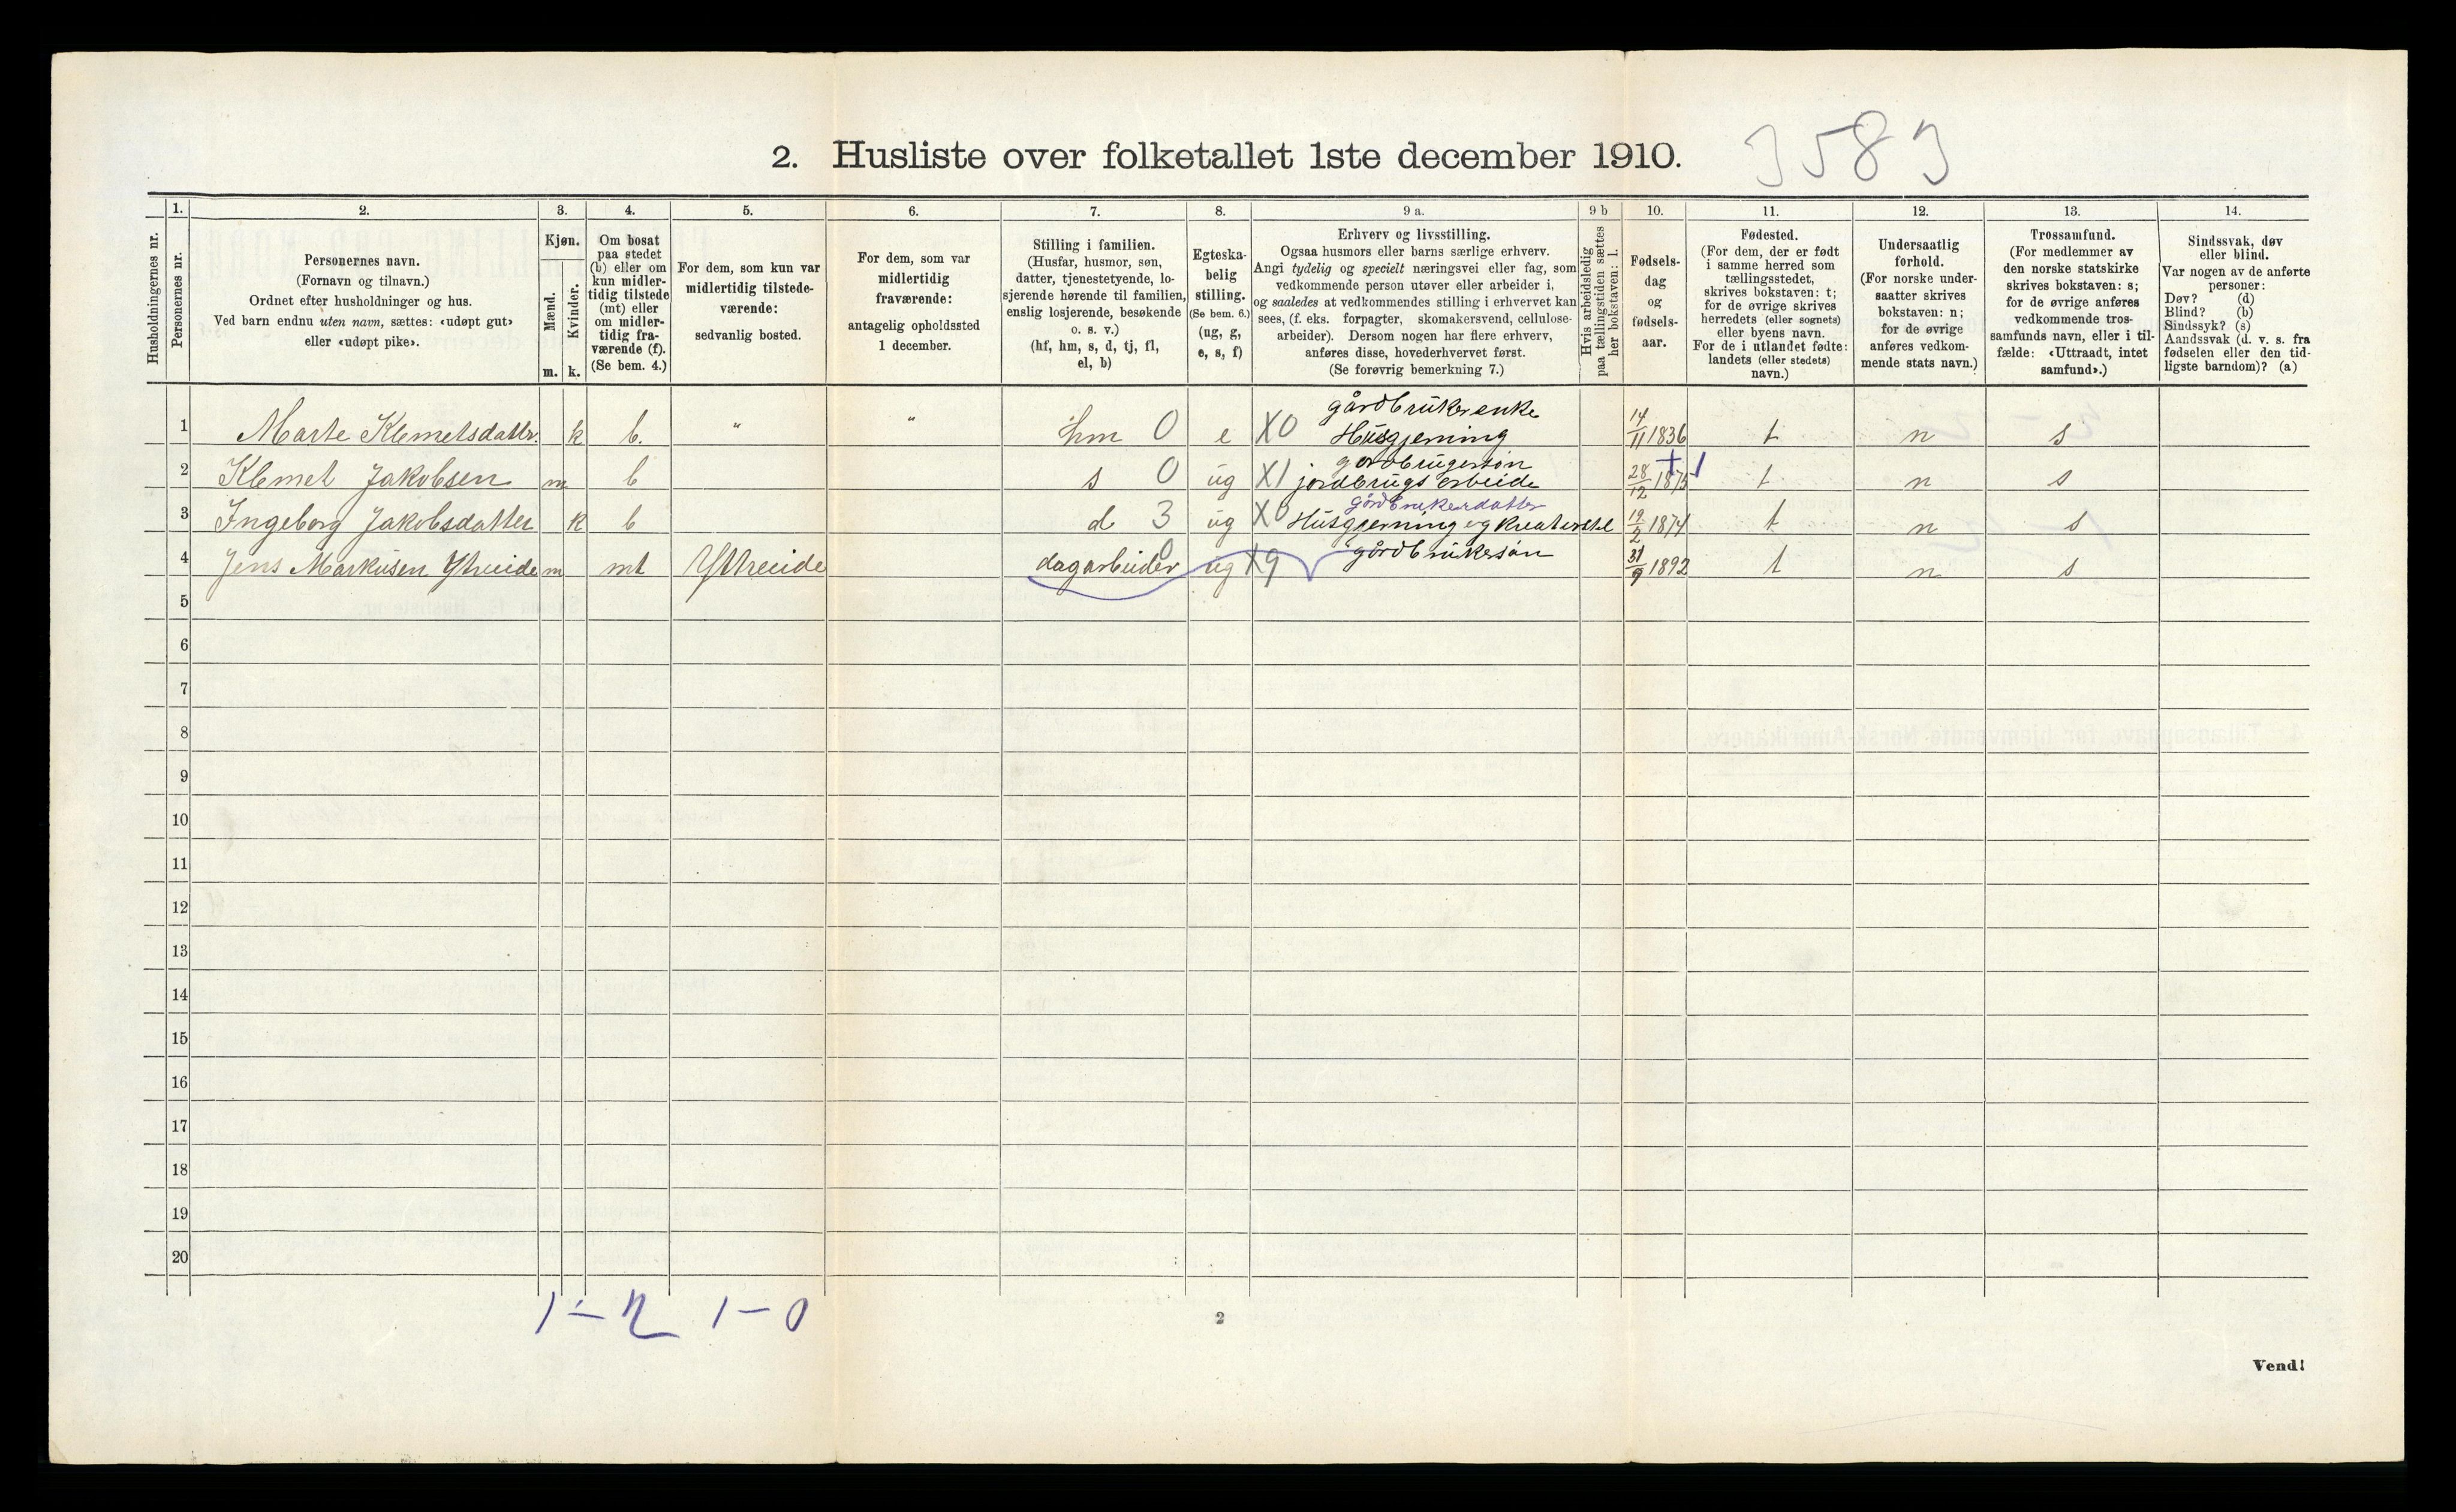 2. Husliste over folketallet 1ste december 1910.
3583
Husholdningernes nr.
1.
Personernes nr.
2.
Personernes navn.
(Fornavn og tilnavn.)
Ordnet efter husholdninger og hus.
Ved barn endnu uten navn, sættes: «udøpt gut»
eller «udøpt pike».
3.
Kjøn.
Mænd.
Kvinder.
m. k.
4.
Om bosat
paa stedet
(b) eller om
kun midler-
tidig tilstede
(mt) eller
om midler-
tidig fra-
værende (f).
(Se bem. 4.)
5.
For dem, som kun var
midlertidig tilstede-
værende:
sedvanlig bosted.
6.
For dem, som var
midlertidig
fraværende:
antagelig opholdssted
1 december.
7.
Stilling i familien.
(Husfar, husmor, søn,
datter, tjenestetyende, lo-
sjerende hørende til familien,
enslig losjerende, besøkende
o. s. v.)
(hf, hm, s, d, tj, fl,
el, b)
8.
Egteska-
belig
stilling.
(Se bem. 6.)
(ug, g,
e, s, f)
9 a.
Erhverv og livsstilling.
Ogsaa husmors eller barns særlige erhverv.
Angi tydelig og specielt næringsvei eller fag, som
vedkommende person utøver eller arbeider i,
og saaledes at vedkommendes stilling i erhvervet kan
sees, (f. eks. forpagter, skomakersvend, cellulose-
arbeider). Dersom nogen har flere erhverv,
anføres disse, hovederhvervet først.
(Se forøvrig bemerkning 7.)
9 b
Hvis arbeidsledig
paa tællingstiden sættes
her bokstaven: l.
10.
Fødsels-
dag
og
fødsels-
aar.
11.
Fødested.
(For dem, der er født
i samme herred som
tællingsstedet,
skrives bokstaven: t;
for de øvrige skrives
herredets (eller sognets)
eller byens navn.
For de i utlandet fødte:
landets (eller stedets)
navn.)
12.
Undersaatlig
forhold.
(For norske under-
saatter skrives
bokstaven: n;
for de øvrige
anføres vedkom-
mende stats navn.)
13.
Trossamfund.
(For medlemmer av
den norske statskirke
skrives bokstaven: s;
for de øvrige anføres
vedkommende tros-
samfunds navn, eller i til-
fælde: «Uttraadt, intet
samfund».)
14.
Sindssvak, døv
eller blind.
Var nogen av de anførte
personer:
Døv? (d)
Blind? (b)
Sindssyk? (s)
Aandssvak (d. v. s. fra
fødselen eller den tid-
ligste barndom)? (a)
gårdbrukerenke
1 Marte Klemetsdattr. k b. " " hm 0 e X0 Husgjerning 14/11 1836 t n s
gårdbrugersøn
2 Klemet Jakobsen m b s 0 ug X1 jordbrugsarbeide 28/12 1875 t n s
gårdbrukerdatter
3 Ingeborg Jakobsdatter k b d 3 ug X0 Husgjerning og kreaturstel 19/2 1874 t n s
4 Jens Markusen Ytreeide m mt Yttreeide dagarbeider 0 ug X9 gårdbrukersøn 31/9 1892 t n s
5
6
7
8
9
10
11
12
13
14
15
16
17
18
19
20
1 – 2 1 – 0
2
Vend!